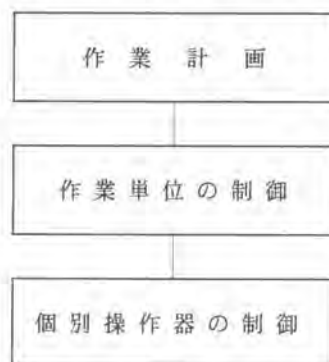 作業計画
作業単位の制御
個別操作器の制御